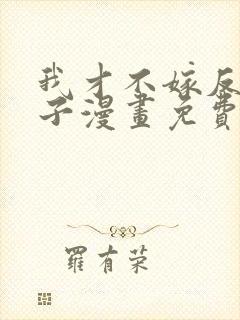 我才不嫁反
子漫畫免費
羅有荣